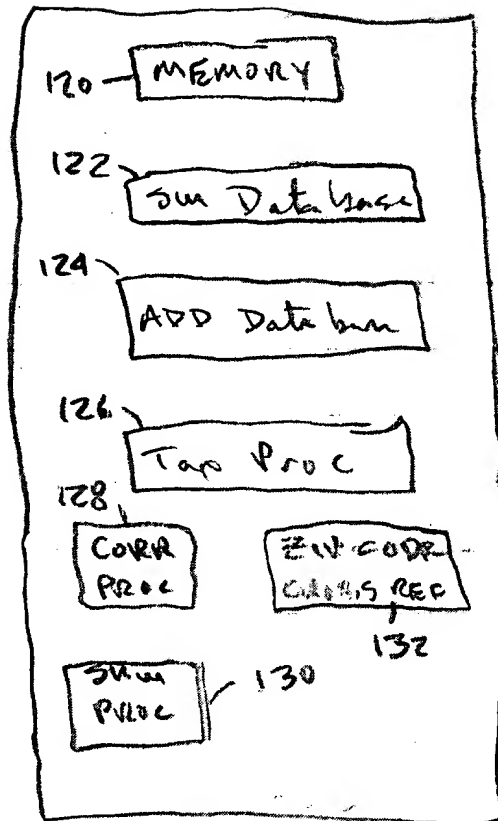 120 MEMORY
122
Database
124
ADD Database
126
Tap Proc
128
CORR
PROC
CODE
REF
132
130
PROC